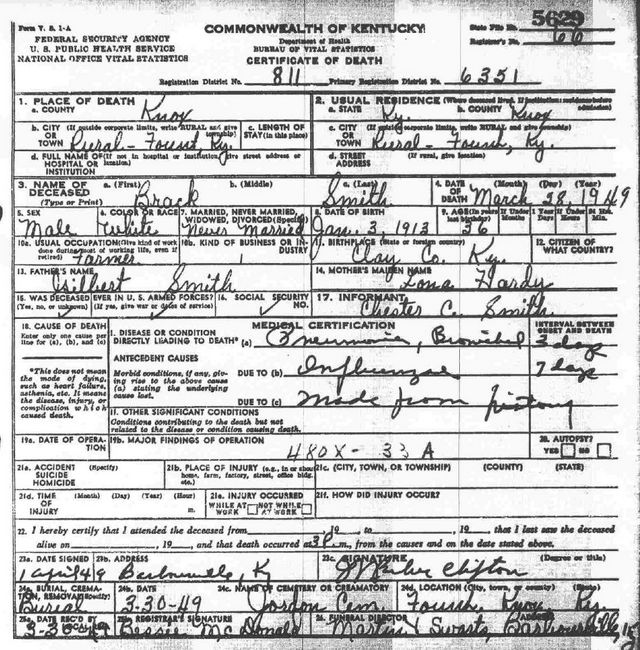 Form V. S. 1-A
COMMONWEALTH OF KENTUCKY
State File No. 5629
FEDERAL SECURITY AGENCY
Department of Health
Registrar's No. 66
U. S. PUBLIC HEALTH SERVICE
BUREAU OF VITAL STATISTICS
NATIONAL OFFICE VITAL STATISTICS
CERTIFICATE OF DEATH
Registration District No. 811 Primary Registration District No. 6351
1. PLACE OF DEATH
a. COUNTY Knox
2. USUAL RESIDENCE (Where deceased lived. If institution: residence before admission)
a. STATE Ky. b. COUNTY Knox
b. CITY (If outside corporate limits, write RURAL and give township) OR TOWN Rural- Ky.
c. LENGTH OF STAY (in this place)
c. CITY (If outside corporate limits, write RURAL and give township) OR TOWN Rural- Ky.
d. FULL NAME OF (If not in hospital or institution, give street address or location) HOSPITAL OR INSTITUTION
d. STREET ADDRESS (If rural, give location)
3. NAME OF DECEASED (Type or Print)
a. (First) Brack b. (Middle) c. (Last) Smith
4. DATE OF DEATH (Month) (Day) (Year) March 28, 1949
5. SEX Male
6. COLOR OR RACE White
7. MARRIED, NEVER MARRIED, WIDOWED, DIVORCED (Specify) Never Married
8. DATE OF BIRTH Jan. 3, 1913
9. AGE (In years last birthday) 36 If Under 1 Year Months Days If Under 24 Hrs. Hours Min.
10a. USUAL OCCUPATION (Give kind of work done during most of working life, even if retired) Farmer
10b. KIND OF BUSINESS OR INDUSTRY
11. BIRTHPLACE (State or foreign country) Clay Co. Ky.
12. CITIZEN OF WHAT COUNTRY?
13. FATHER'S NAME Wilbert Smith
14. MOTHER'S MAIDEN NAME Lona Hardy
15. WAS DECEASED EVER IN U. S. ARMED FORCES? (Yes, no, or unknown) (If yes, give war or dates of service)
16. SOCIAL SECURITY NO.
17. INFORMANT Chester C. Smith
18. CAUSE OF DEATH
Enter only one cause per line for (a), (b), and (c)
MEDICAL CERTIFICATION
INTERVAL BETWEEN ONSET AND DEATH
I. DISEASE OR CONDITION DIRECTLY LEADING TO DEATH* (a) Pneumonia, Bronchial 3 days
*This does not mean the mode of dying, such as heart failure, asthenia, etc. It means the disease, injury, or complication which caused death.
ANTECEDENT CAUSES
Morbid conditions, if any, giving rise to the above cause (a) stating the underlying cause last.
DUE TO (b) Influenzae 7 days
DUE TO (c) Made from history
II. OTHER SIGNIFICANT CONDITIONS
Conditions contributing to the death but not related to the disease or condition causing death.
19a. DATE OF OPERATION
19b. MAJOR FINDINGS OF OPERATION
480X- 33 A
20. AUTOPSY? YES NO
21a. ACCIDENT SUICIDE HOMICIDE (Specify)
21b. PLACE OF INJURY (e.g., in or about home, farm, factory, street, office bldg. etc.)
21c. (CITY, TOWN, OR TOWNSHIP) (COUNTY) (STATE)
21d. TIME OF INJURY (Month) (Day) (Year) (Hour) m.
21e. INJURY OCCURRED WHILE AT WORK NOT WHILE AT WORK
21f. HOW DID INJURY OCCUR?
22. I hereby certify that I attended the deceased from 19 to 19 that I last saw the deceased
alive on 19 and that death occurred at 3P m., from the causes and on the date stated above.
23a. DATE SIGNED 1 April 49
23b. ADDRESS Barbourville, Ky
23c. SIGNATURE Clifton (Degree or title)
24a. BURIAL, CREMATION, REMOVAL (Specify) Burial
24b. DATE 3-30-49
24c. NAME OF CEMETERY OR CREMATORY Jordon Cem.
24d. LOCATION (City, town, or county) (State) Knox Ky.
25a. DATE REC'D BY LOCAL REG. 3-30-49
25b. REGISTRAR'S SIGNATURE Bessie McDonald
26. FUNERAL DIRECTOR ADDRESS Martin Barbourville, Ky